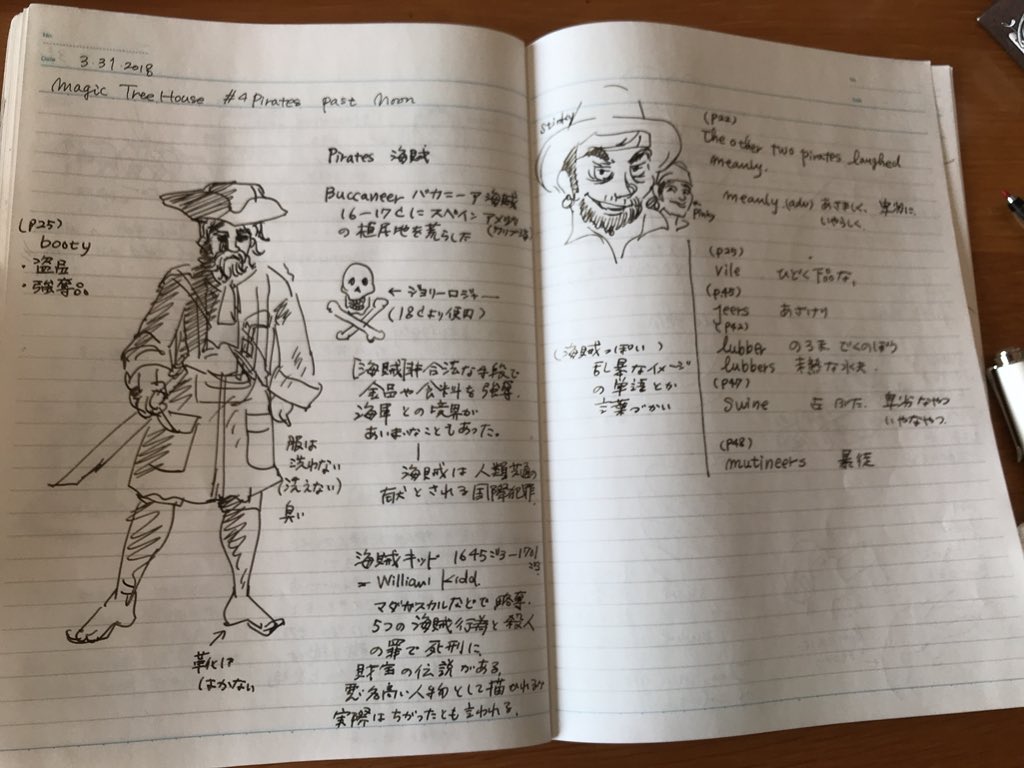 No.
Date 3 31 2018
Magic Tree House #4 Pirates past Noon
Pirates 海賊
Buccaneer バカニーア 海賊
16-17cにスペイン アメリカ
の植民地を荒らした
(p25)
booty
・盗品
・強奪品
← ジョリーロジャー
(18cより使用)
[海賊]非合法な手段で
金品や食料を強奪.
海軍との境界が
あいまいなこともあった。
海賊は人類共通の
敵とされる国際犯罪
服は
洗わない
(洗えない)
臭い
海賊キッド 1645ごろ-1701
= William Kidd.
マダガスカルなどで略奪.
5つの海賊行為と殺人
の罪で死刑に.
財宝の伝説がある.
悪名高い人物として描かれるが
実際はちがったとも言われる.
靴は
はかない
stinky
Pinky
(p22)
The other two pirates laughed
meanly.
meanly (adv) あさましく、卑劣に.
いやらしく.
(p25)
vile ひどく下品な.
(p45)
jeers あざけり
(p42)
lubber のろま でくのぼう
lubbers 未熟な水夫.
(p47)
Swine ブタ. 卑劣なやつ
いやなやつ.
(p48)
mutineers 暴徒
(海賊っぽい)
乱暴なイメージ
の単語とか
言葉づかい